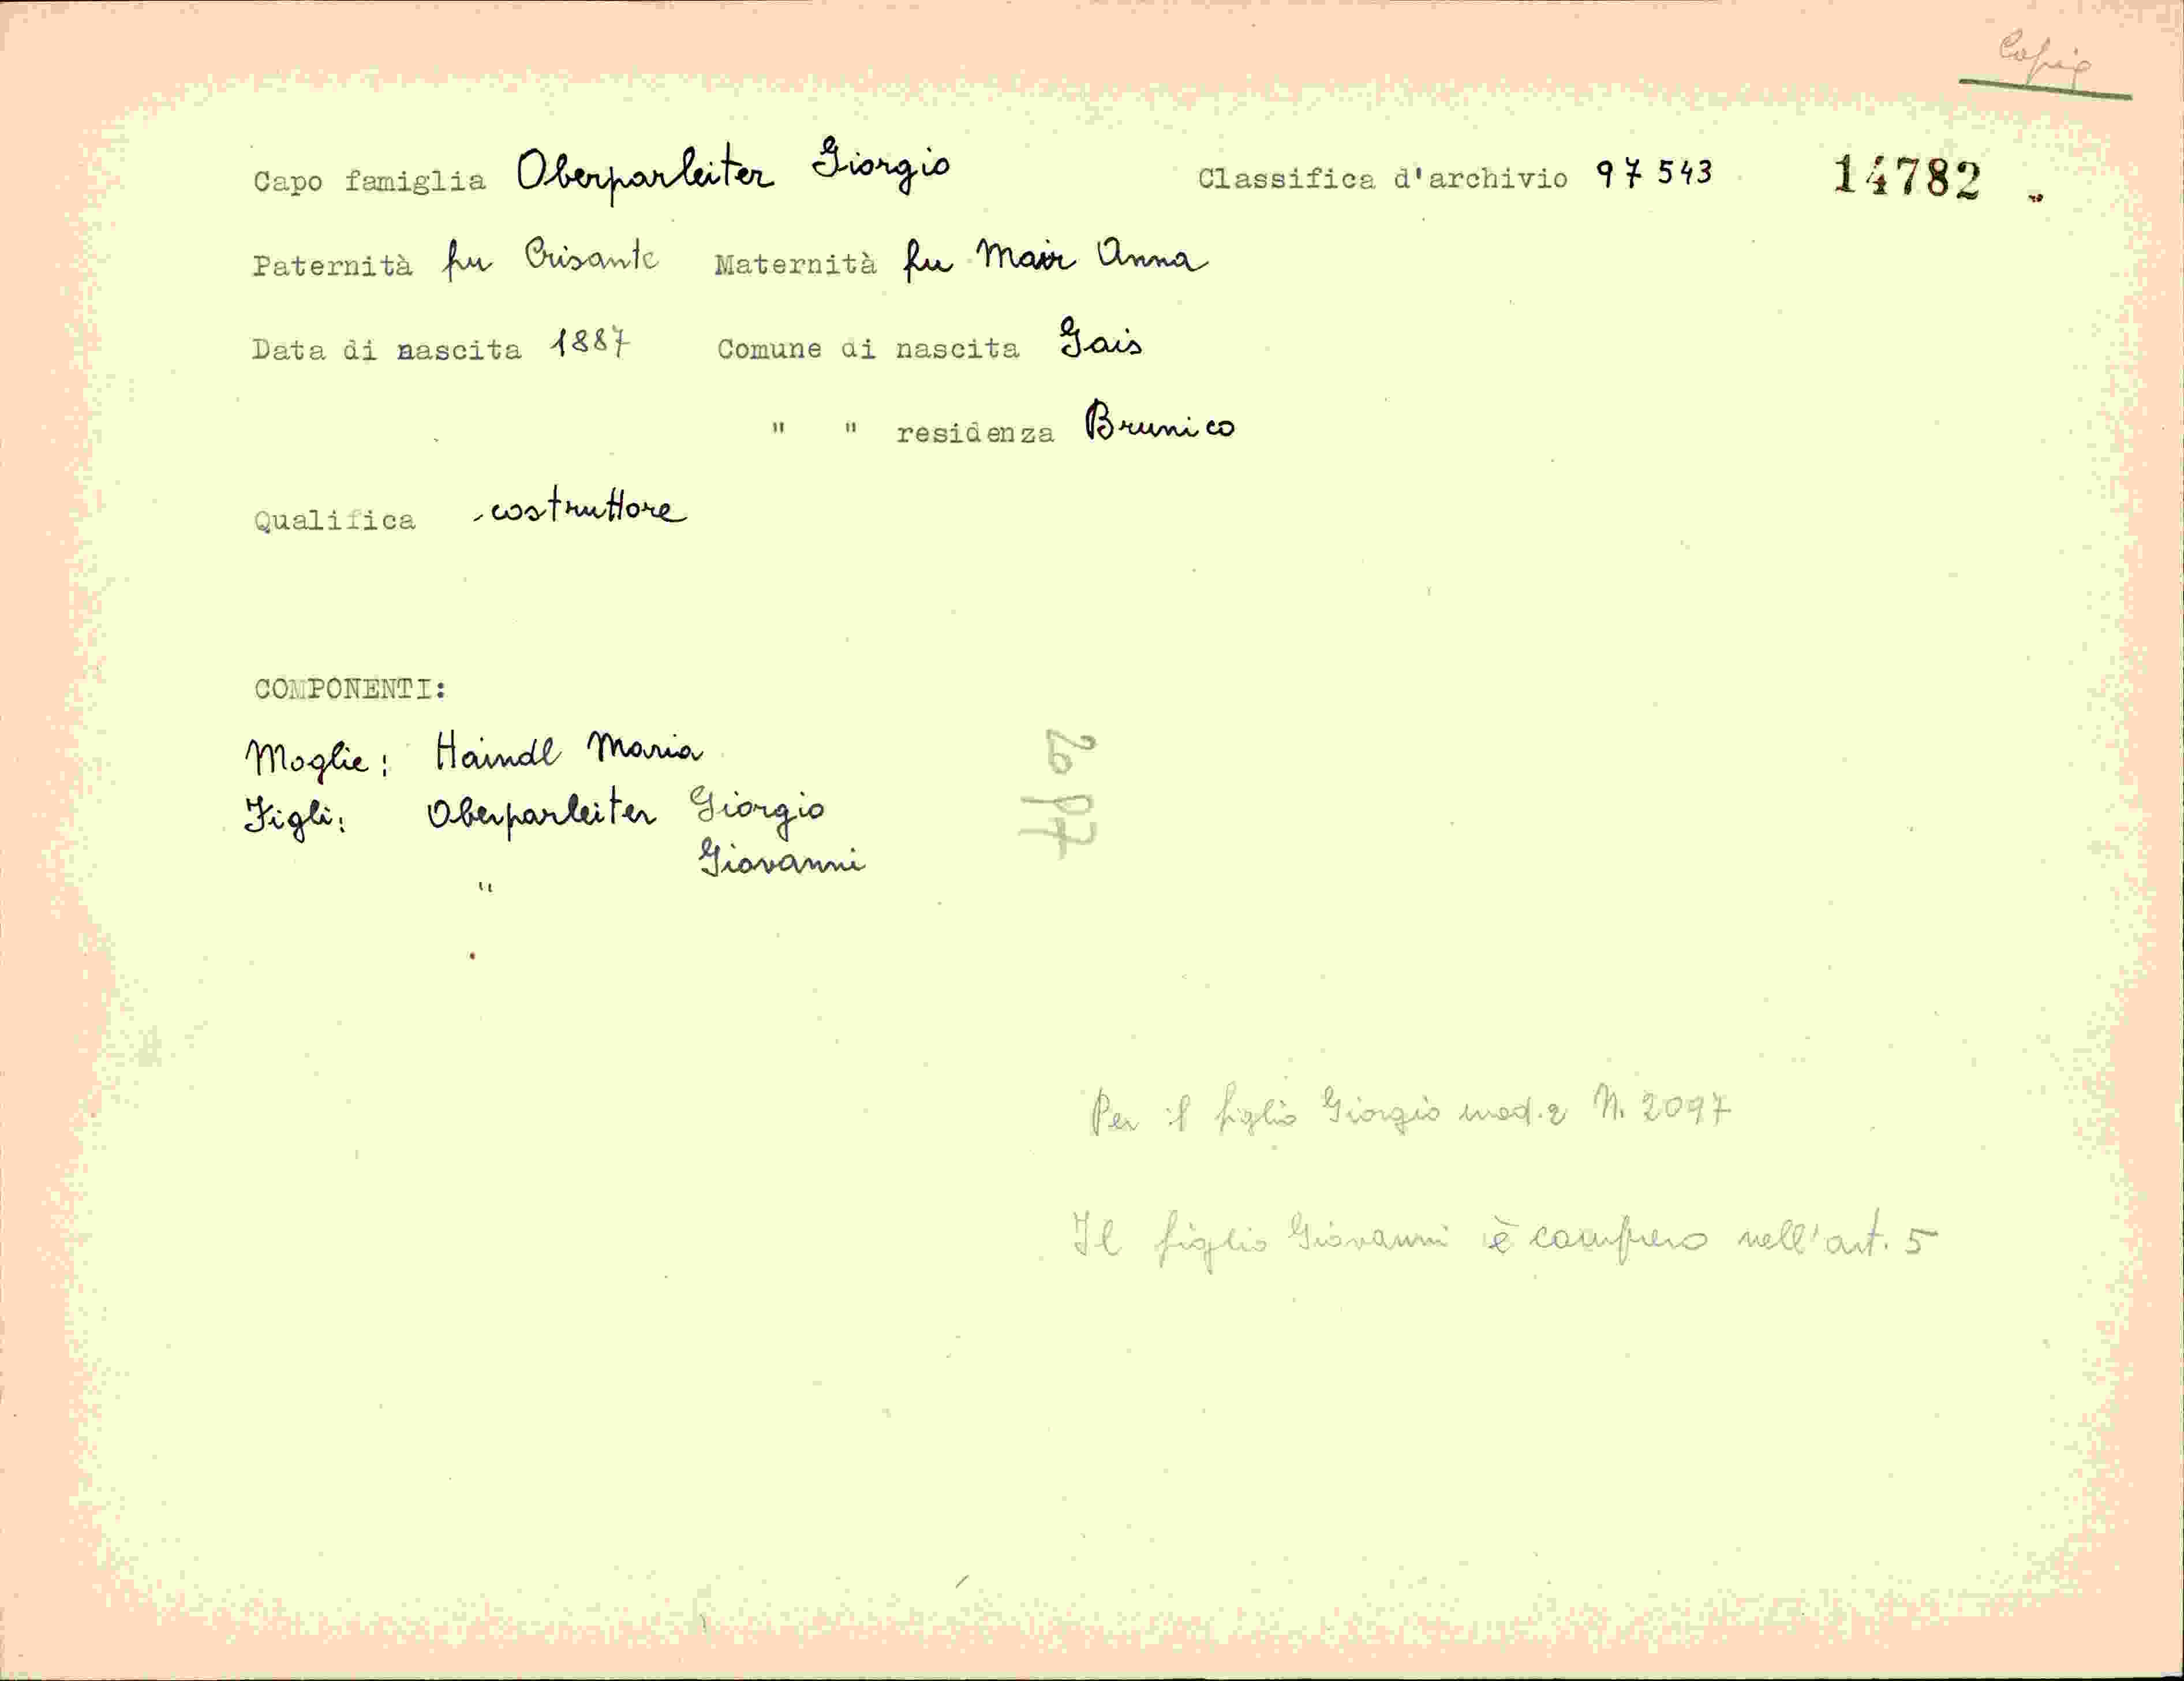 Copia
Capo famiglia Oberparleiter Giorgio Classifica d'archivio 97543 14782
Paternità fu Crisante Maternità fu Mair Anna
Data di nascita 1887 Comune di nascita Gais
" " residenza Brunico
Qualifica costruttore
COMPONENTI:
Moglie: Haindl Maria
Figli: Oberparleiter Giorgio
" Giovanni
2097
Per il figlio Giorgio mod. 2 N. 2097
Il figlio Giovanni è compreso nell'art. 5